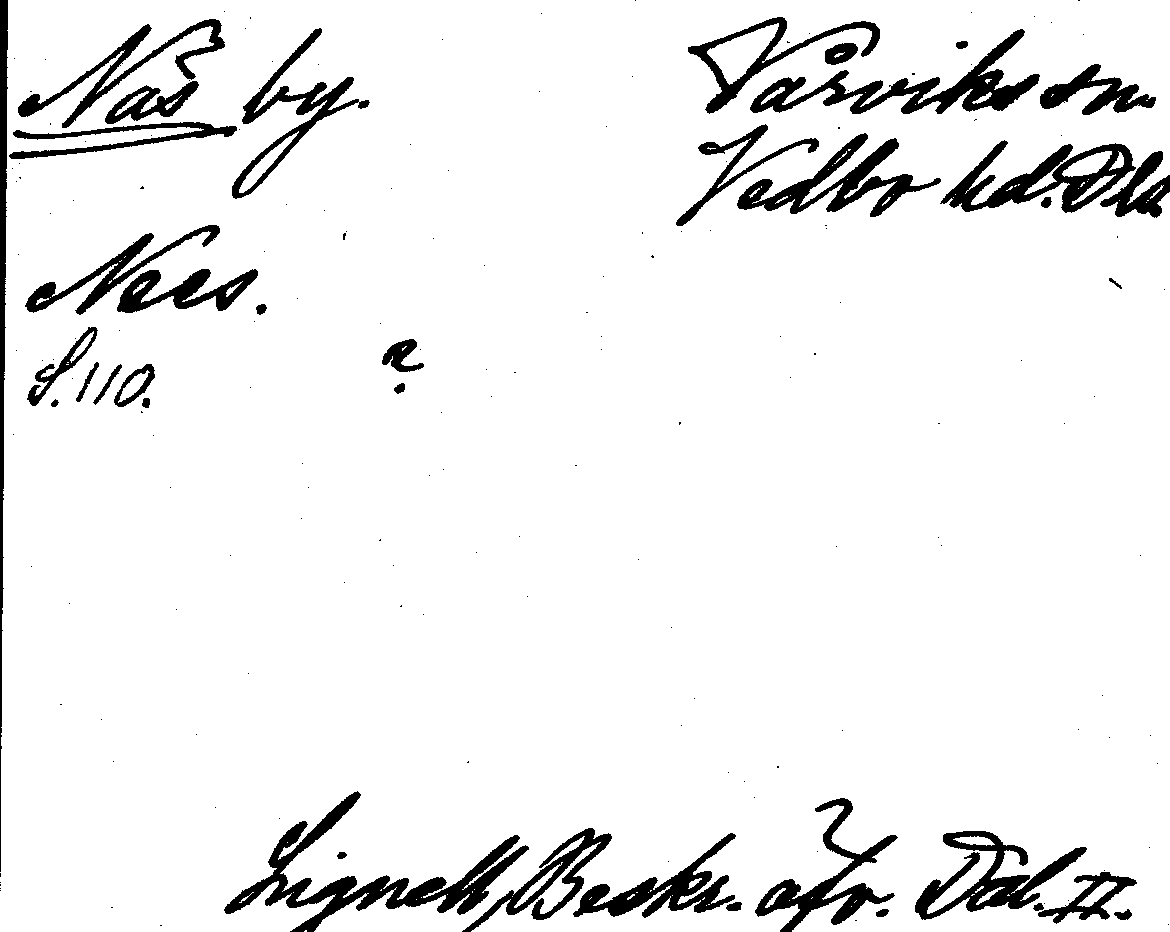 Näs by.
Vårviks sn.
Vedbo hd. Dls.
Nees.
S. 110.
?
Lignell, Beskr. öfv. Dal. II.